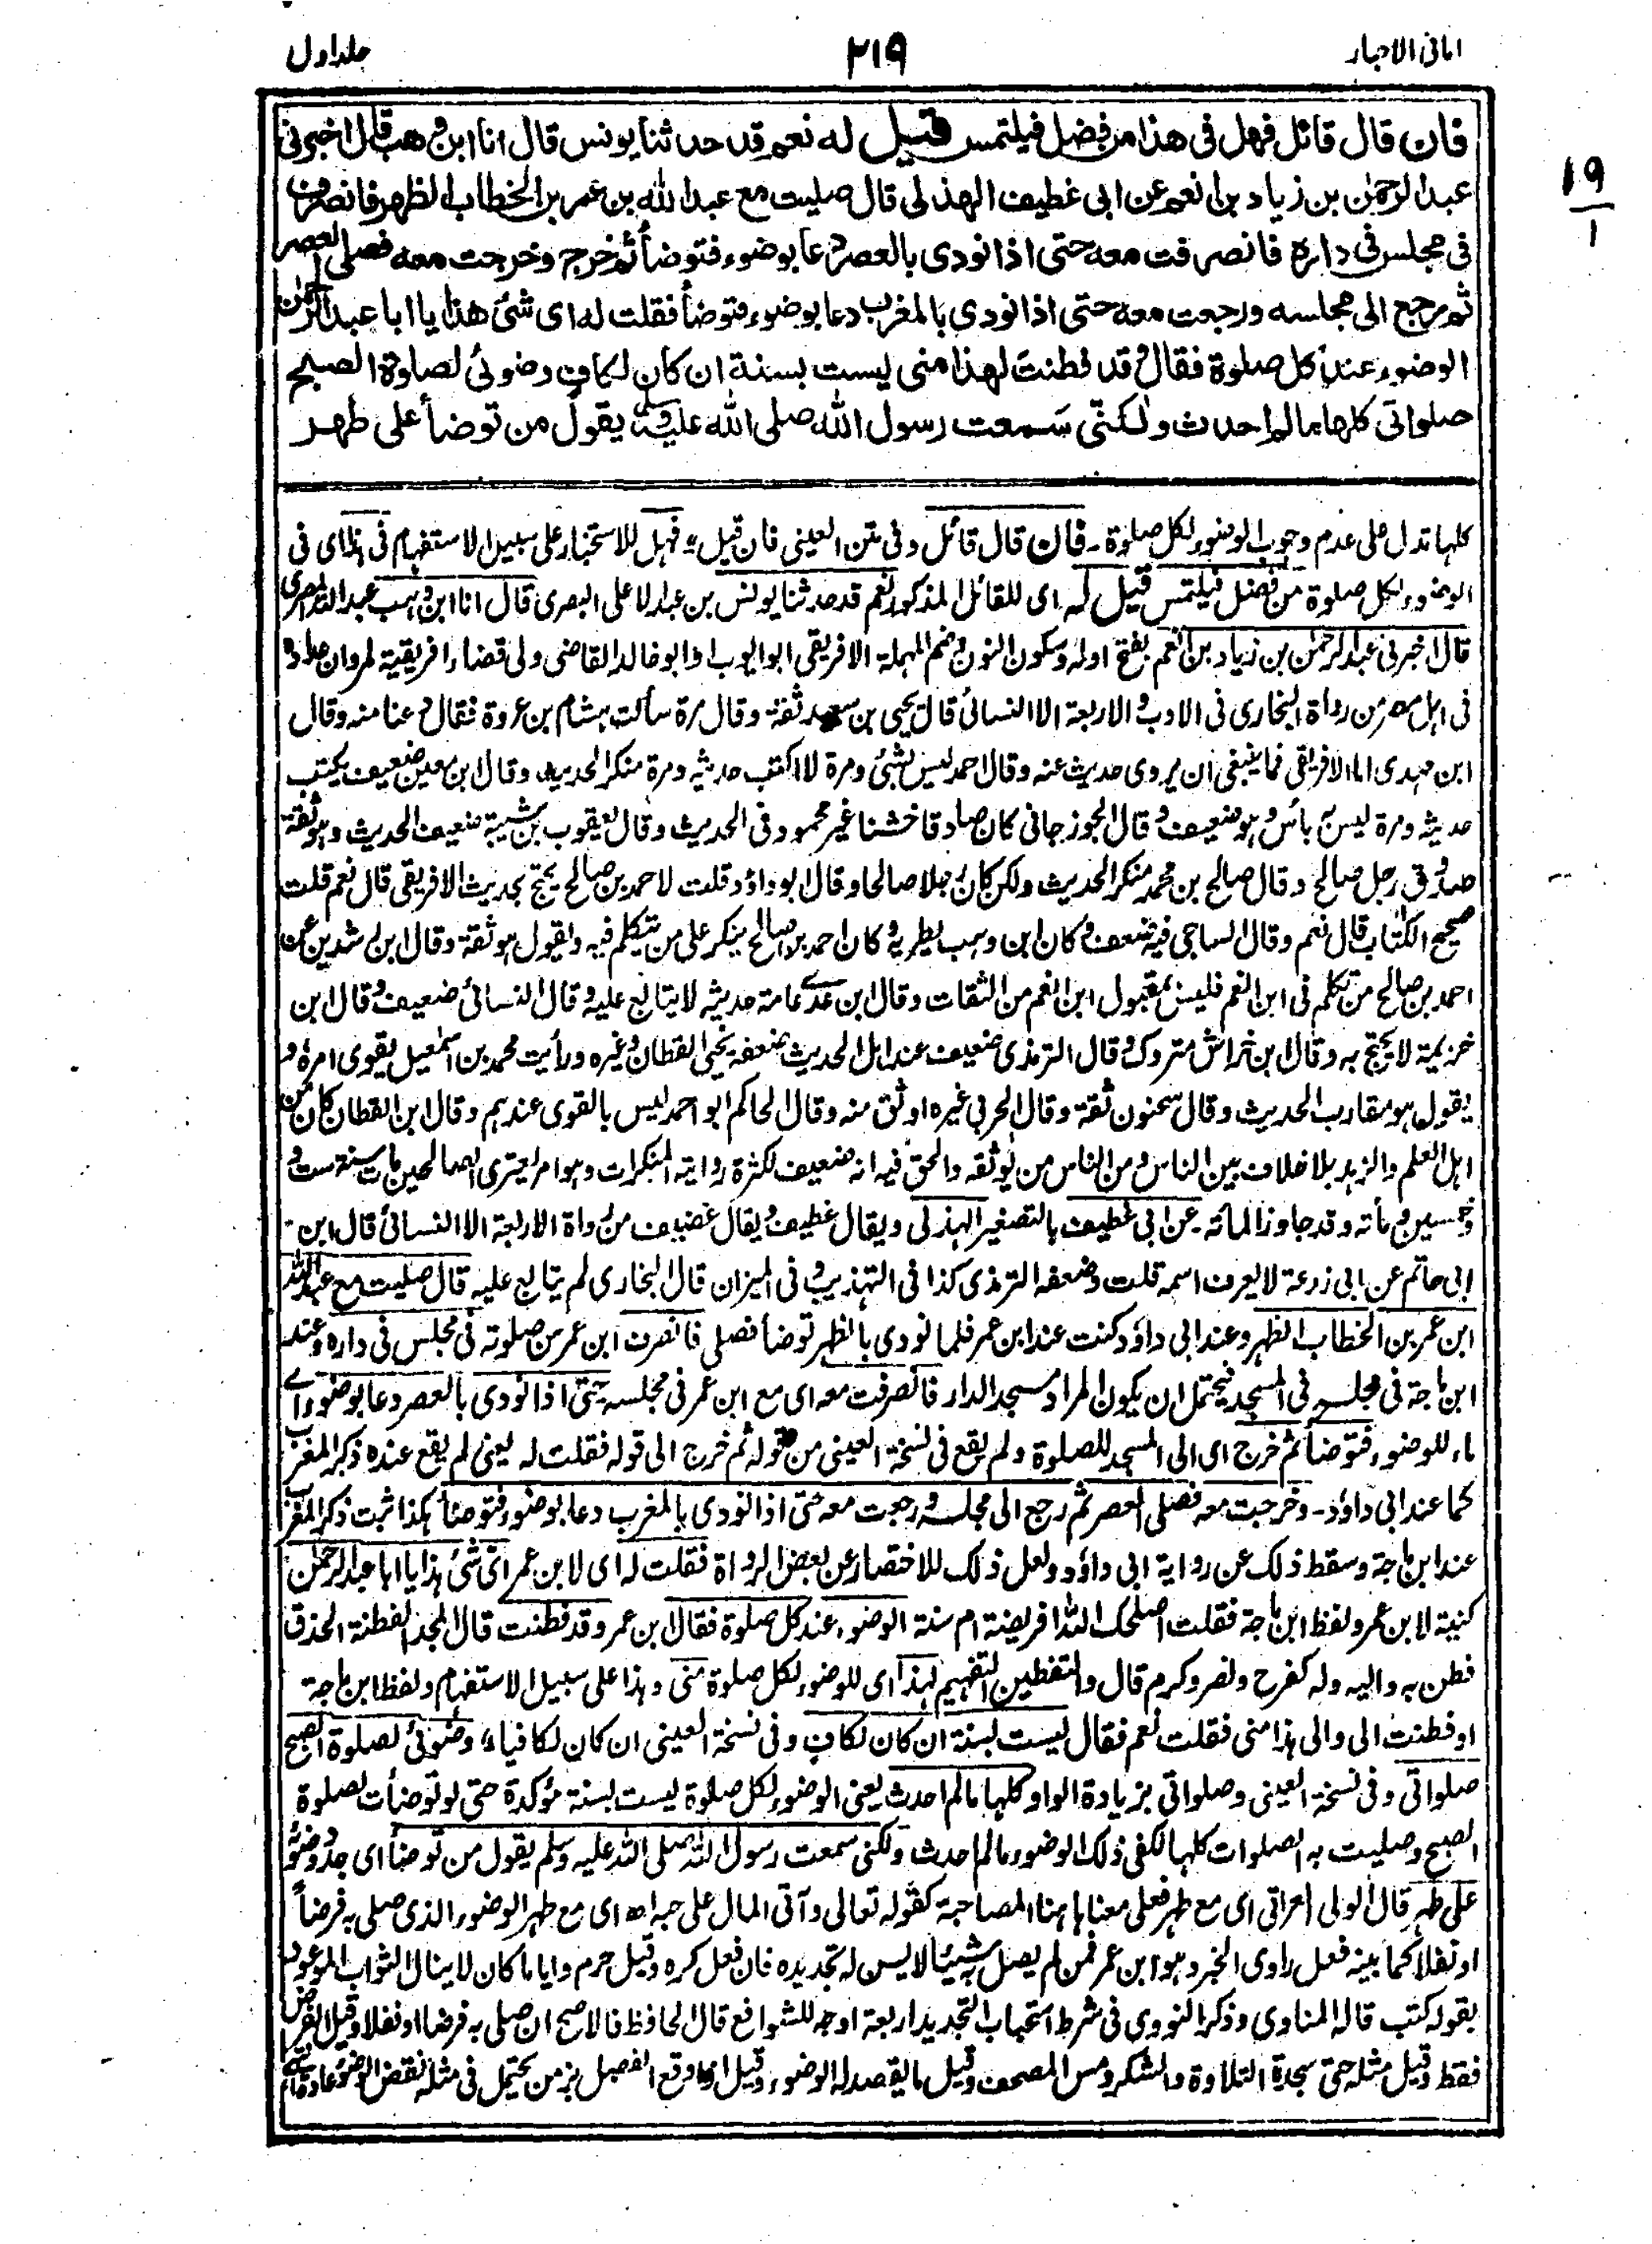 امانی الاحبار
٢١٩
جلد اول
١٩
١
فان قال قائل فهل فی هذا من فضل فیلتمس قیل له نعم قد حدثنا یونس قال انا ابن وهب قال اخبرنی
عبد الرحمٰن بن زیاد بن انعم عن ابی غطیف الهذلی قال صلیت مع عبد الله بن عمر بن الخطاب الظهر فانصرف
فی مجلس فی داره فانصرفت معه حتی اذا نودی بالعصر دعا بوضوء فتوضأ ثم خرج وخرجت معه فصلی العصر
ثم رجع الی مجلسه ورجعت معه حتی اذا نودی بالمغرب دعا بوضوء فتوضأ فقلت له ای شئ هذا یا ابا عبد الرحمٰن
الوضوء عند کل صلوة فقال وقد فطنت لهذا منی لیست بسنة ان کان لکاف وضوئی لصلوة الصبح
صلواتی کلها ما لم احدث ولٰکنی سمعت رسول الله صلی الله علیه وسلم یقول من توضأ علی طهر
کلها تدل علی عدم وجوب الوضوء لکل صلوة ۔ فان قال قائل وفی متن العینی فان قیل فهل للاستخبار علی سبیل الاستفهام فی هذا ای فی
الوضوء لکل صلوة من فضل فیلتمس قیل له ای للقائل المذکور نعم قد حدثنا یونس بن عبد الاعلی البصری قال انا ابن وهب عبد الله المصری
قال اخبرنی عبد الرحمٰن بن زیاد بن انعم بفتح اوله وسکون النون وضم المهملة الافریقی ابو ایوب او ابو خالد القاضی ولی قضاء افریقیة لمروان عداده
فی اهل مصر من رواة البخاری فی الادب والاربعة الا النسائی قال یحیی بن سعید ثقة وقال مرة سألت هشام بن عروة فقال دعنا منه وقال
ابن مهدی اما الافریقی فما ینبغی ان یروی حدیث عنه وقال احمد لیس بشئ ومرة لا اکتب حدیثه ومرة منکر الحدیث وقال ابن معین ضعیف یکتب
حدیثه ومرة لیس به بأس وهو ضعیف وقال الجوزجانی کان صادقا خشنا غیر محمود فی الحدیث وقال یعقوب بن شیبة ضعیف الحدیث وهو ثقة
صدوق رجل صالح وقال صالح بن محمد منکر الحدیث ولکن کان رجلا صالحا وقال ابو داؤد قلت لاحمد بن صالح یحتج بحدیث الافریقی قال نعم قلت
صحیح الکتاب قال نعم وقال الساجی فیه ضعف وکان ابن وهب یطریه وکان احمد بن صالح ینکر علی من یتکلم فیه ویقول هو ثقة وقال ابن رشدین عن
احمد بن صالح من تکلم فی ابن انعم فلیس بمقبول ابن انعم من الثقات وقال ابن عدی عامة حدیثه لا یتابع علیه وقال النسائی ضعیف وقال ابن
خزیمة لا یحتج به وقال ابن خراش متروک وقال الترمذی ضعیف عند اهل الحدیث ضعفه یحیی القطان وغیره ورأیت محمد بن اسمٰعیل یقوی امره و
یقول هو مقارب الحدیث وقال سحنون ثقة وقال الحربی غیره اوثق منه وقال الحاکم ابو احمد لیس بالقوی عندهم وقال ابن القطان کان من
اهل العلم والزهد بلا خلاف بین الناس ومن الناس من یوثقه والحق فیه انه ضعیف لکثرة روایته المنکرات وهو امر یعتری الصالحین مات سنة ست و
خمسین ومأته وقد جاوز المائة ۔ عن ابی غطیف بالتصغیر الهذلی ویقال غطیف ویقال غضیف من رواة الاربعة الا النسائی قال ابن
ابی حاتم عن ابی زرعة لا یعرف اسمه قلت وضعفه الترمذی کذا فی التهذیب وفی المیزان قال البخاری لم یتابع علیه قال صلیت مع عبد الله
ابن عمر بن الخطاب الظهر وعند ابی داؤد کنت عند ابن عمر فلما نودی بالظهر توضأ فصلی فانصرف ابن عمر من صلوته فی مجلس فی داره وعند
ابن ماجة فی مجلسه فی المسجد فیحتمل ان یکون المراد مسجد الدار فانصرفت معه ای مع ابن عمر فی مجلسه حتی اذا نودی بالعصر دعا بوضوء ای
ماء للوضوء فتوضأ ثم خرج ای الی المسجد للصلوة ولم یقع فی نسخة العینی من قوله ثم خرج الی قوله فقلت له یعنی لم یقع عنده ذکر المغرب
کما عند ابی داؤد ۔ وخرجت معه فصلی العصر ثم رجع الی مجلسه ورجعت معه حتی اذا نودی بالمغرب دعا بوضوء فتوضأ هکذا ثبت ذکر المغرب
عند ابن ماجة وسقط ذلک عن روایة ابی داؤد ولعل ذلک للاختصار عن بعض الرواة فقلت له ای لابن عمر ای شئ هذا یا ابا عبد الرحمٰن
کنیة لابن عمر ولفظ ابن ماجة فقلت اصلحک الله افریضة ام سنة الوضوء عند کل صلوة فقال ابن عمر وقد فطنت قال المجد الفطنة الحذق
فطن به والیه وله کفرح ونصر وکرم قال والتفطین التفهیم لهذا ای للوضوء لکل صلوة منی وهذا علی سبیل الاستفهام ولفظ ابن ماجة
او فطنت الی والی هذا منی فقلت نعم فقال لیست بسنة ان کان لکاف وفی نسخة العینی ان کان لکافیاء وضوئی لصلوة الصبح
صلواتی وفی نسخة العینی وصلواتی بزیادة الواو کلها ما لم احدث یعنی الوضوء لکل صلوة لیست بسنة مؤکدة حتی لو توضأت لصلوة
الصبح وصلیت به الصلوات کلها لکفی ذلک الوضوء ما لم احدث ولکنی سمعت رسول الله صلی الله علیه وسلم یقول من توضأ ای جدد وضوئه
علی طهر قال الولی العراقی ای مع طهر فعلی معناها هنا المصاحبة کقوله تعالی وآتی المال علی حبه اھ ای مع طهر الوضوء الذی صلی به فرضاً
او نفلا کما بینه فعل راوی الخبر وهو ابن عمر فمن لم یصل به شیئا لا یسن له تجدیده فان فعل کره وقیل حرم وایا ما کان لا ینال الثواب الموعود
بقوله کتب قاله المناوی وذکر النووی فی شرط استحباب التجدید اربعة اوجه للشوافع قال الحافظ فالاصح ان صلی به فرضا او نفلا وقیل الفرض
فقط وقیل مثله حتی سجدة التلاوة والشکر ومس المصحف وقیل ما یقصد له الوضوء وقیل اذا وقع الفصل بزمن یحتمل فی مثله نقض الوضوء عادة